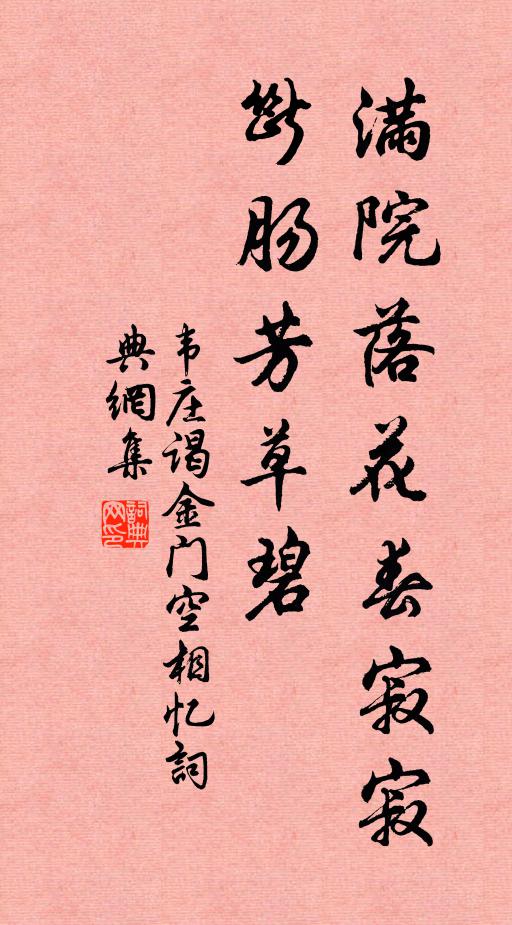 满院落花春寂寂
断肠芳草碧
韦庄谒金门空相忆词
典網集
詞典网印